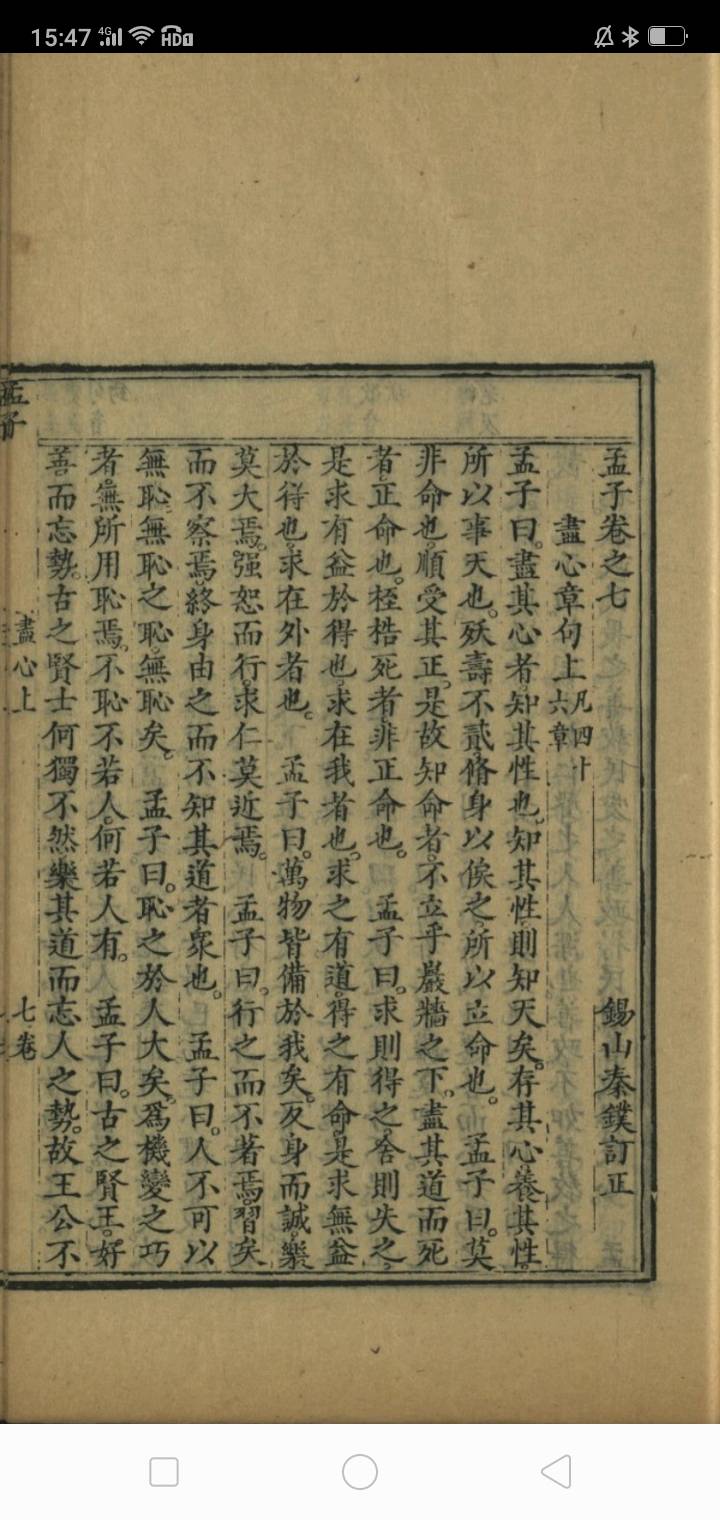 15:47 4G HD1
孟子卷之七 錫山秦鏷訂正
盡心章句上 凡四十六章
孟子曰。盡其心者。知其性也。知其性。則知天矣。存其心。養其性。
所以事天也。殀壽不貳。脩身以俟之。所以立命也。 孟子曰。莫
非命也。順受其正。是故知命者。不立乎巖牆之下。盡其道而死
者。正命也。桎梏死者。非正命也。 孟子曰。求則得之。舍則失之。
是求有益於得也。求在我者也。求之有道。得之有命。是求無益
於得也。求在外者也。 孟子曰。萬物皆備於我矣。反身而誠。樂
莫大焉。强恕而行。求仁莫近焉。 孟子曰。行之而不著焉。習矣
而不察焉。終身由之而不知其道者。衆也。 孟子曰。人不可以
無恥。無恥之恥。無恥矣。 孟子曰。恥之於人大矣。爲機變之巧
者。無所用恥焉。不恥不若人。何若人有。 孟子曰。古之賢王。好
善而忘勢。古之賢士何獨不然。樂其道而忘人之勢。故王公不
孟子 盡心上 七卷